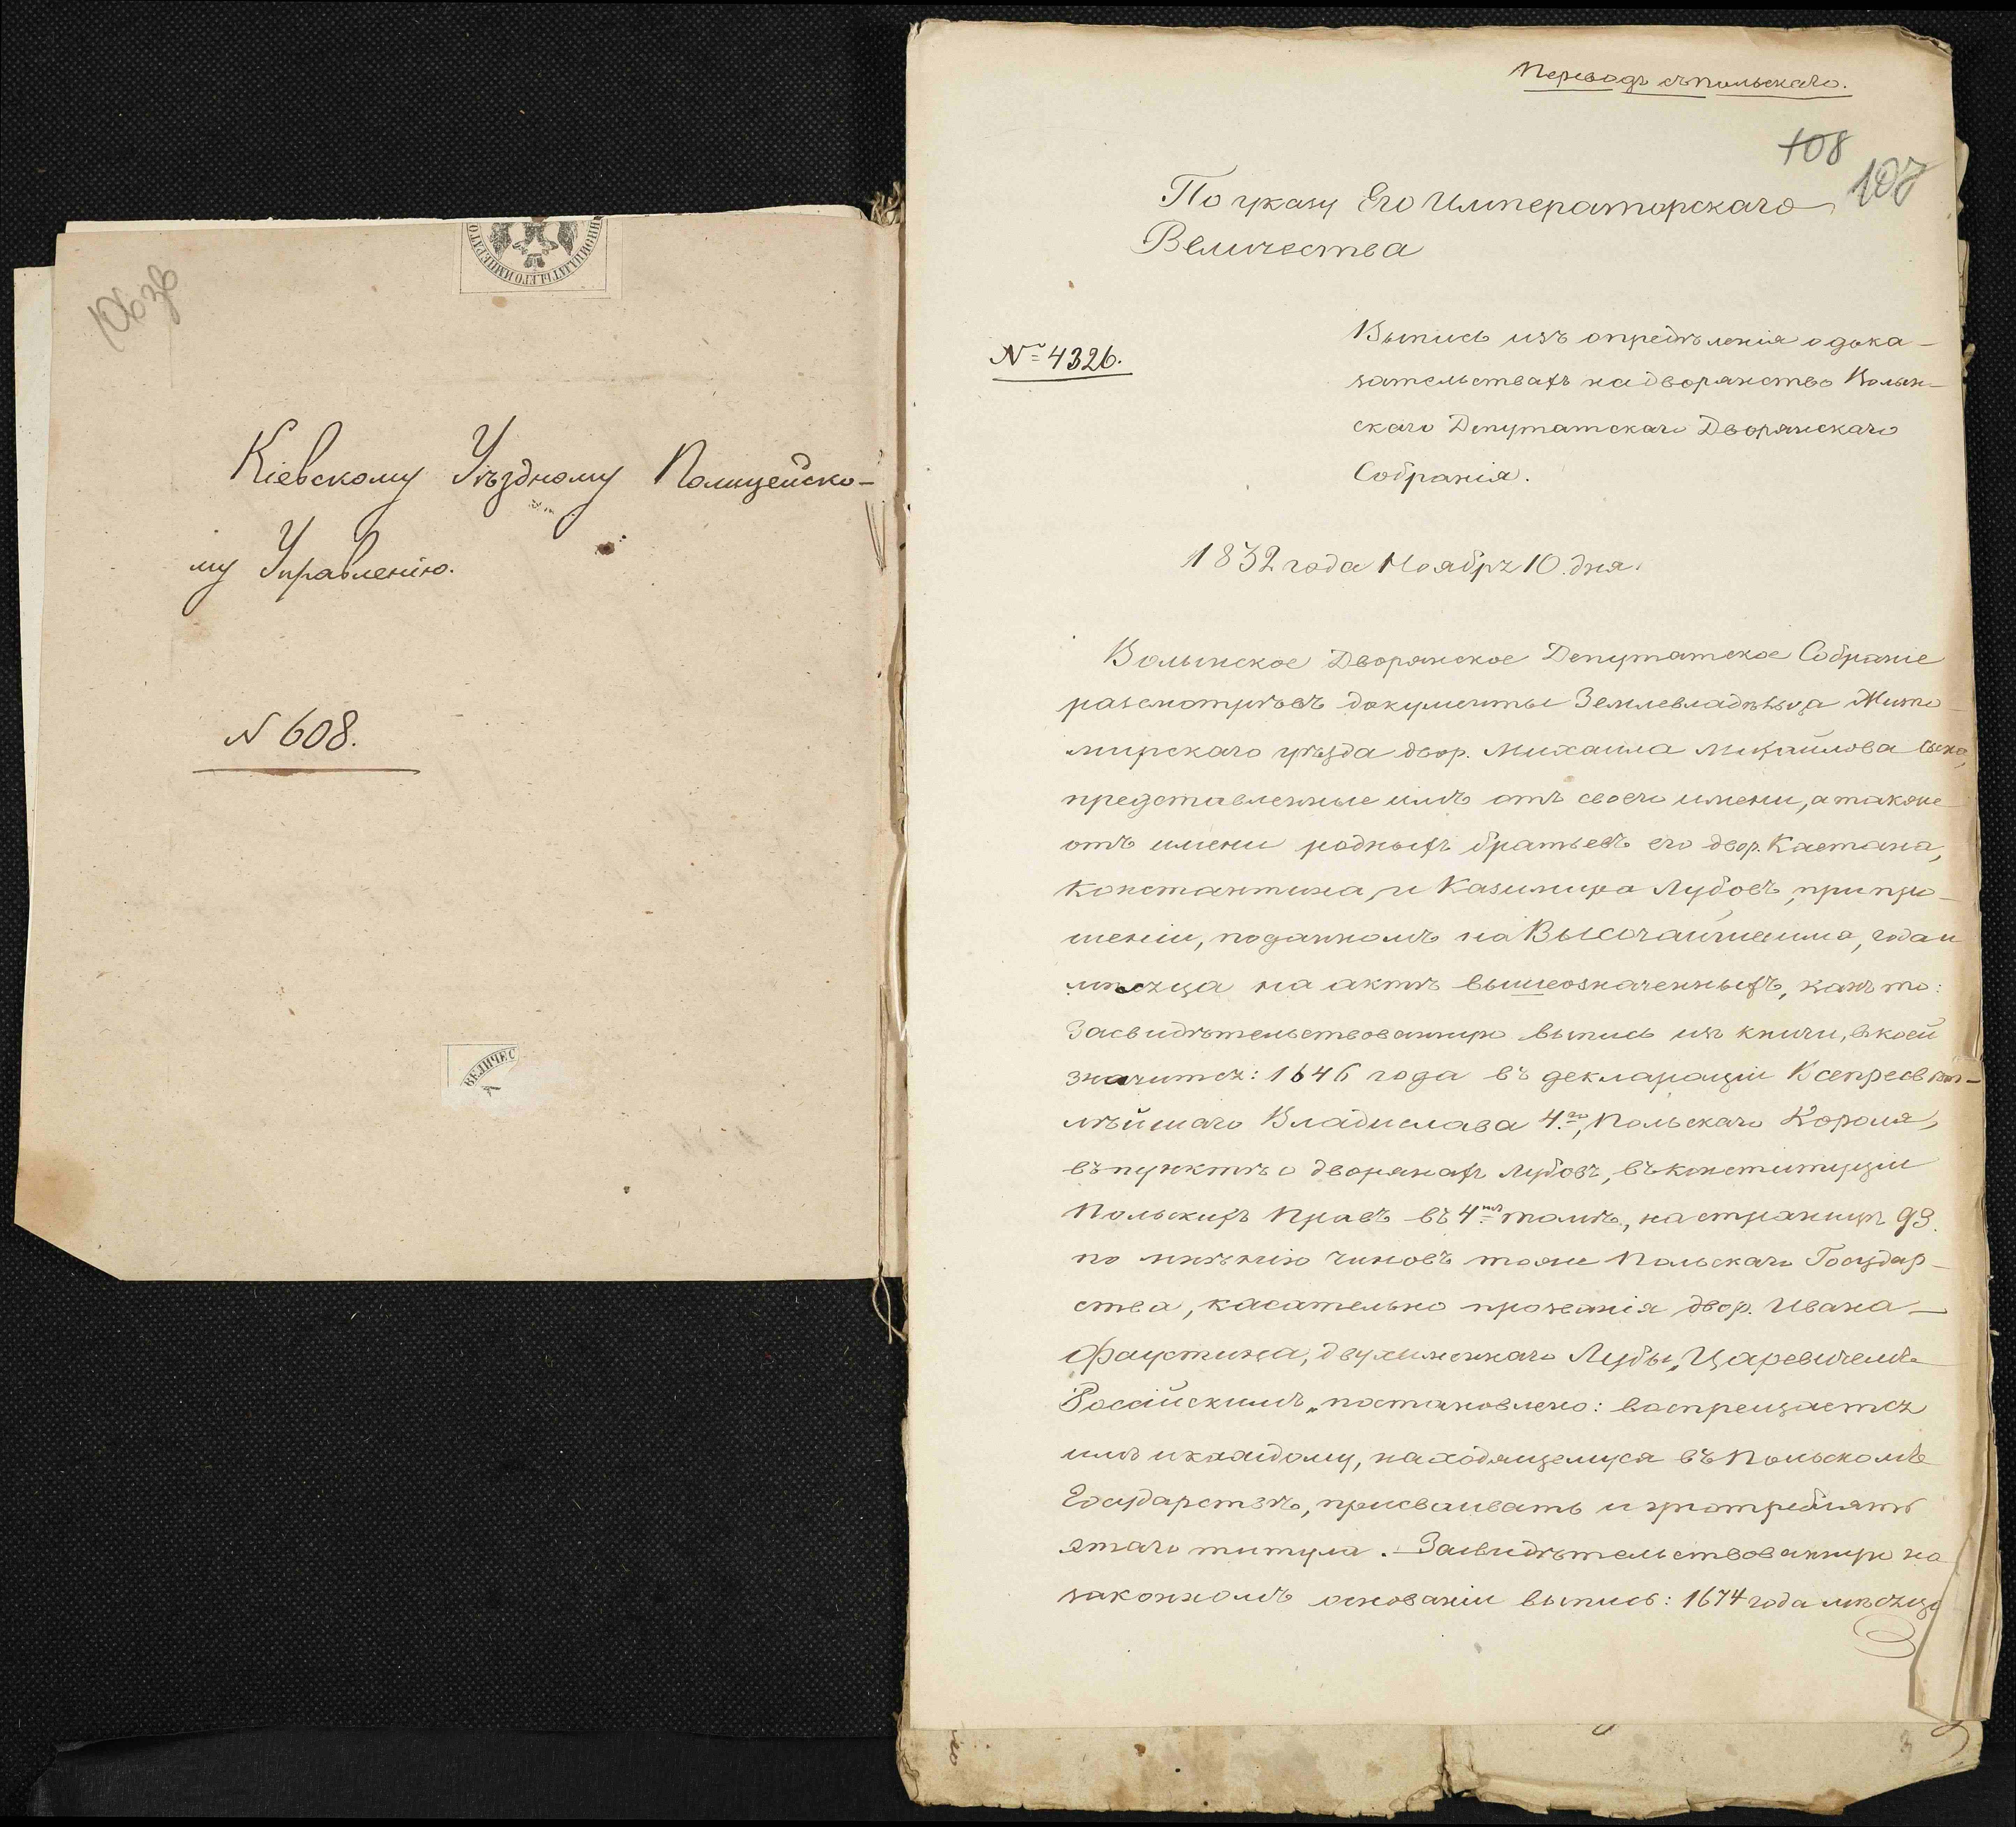 106 зв
Кіевскому Уѣздному Полицейско-
му Управленію.
N 608.
ВЕЛИЧЕС
Переводъ съ польскаго.
108
107
По указу Его Императорскаго
Величества
№ 4326.
Выпись изъ опредѣленія о дока-
зательствахъ на дворянство Волын-
скаго Депутатскаго Дворянскаго
Собранія.
1832 года Ноября 10. дня.
Волынское Дворянское Депутатское Собраніе
разсмотрѣвъ документы Землевладѣльца Жито-
мирскаго уѣзда двор. Михаила Михайлова сына,
представленные имъ отъ своего имени, а также
отъ имени родныхъ братьевъ его двор. Каетана,
Константина, и Казимира Лубовъ, при про-
шеніи, поданномъ на Высочайшеима, года и
мѣсяца на актѣ вышеозначенныхъ, какъ то:
Засвидѣтельствованную выпись изъ книги, въ коей
значится: 1646 года въ декларации Всепресвѣт-
лѣйшаго Владислава 4.го, Польскаго Короля,
въ пунктѣ о дворянахъ Лубовъ, въ конституціи
Польскихъ Правъ въ 4.мъ томѣ, на страницѣ 93.
по мнѣнію чиновъ тояже Польскаго Государ-
ства, касательно прозванія двор. Ивана-
Фаустина, двухименнаго Лубы, „Царевичемъ
Россійскимъ„ постановлено: воспрещается
имъ и каждому, находящемуся въ Польскомъ
Государствѣ, присваивать и употреблять
этаго титула. Засвидѣтельствованную на
законномъ основаніи выпись: 1674 года мѣсяца